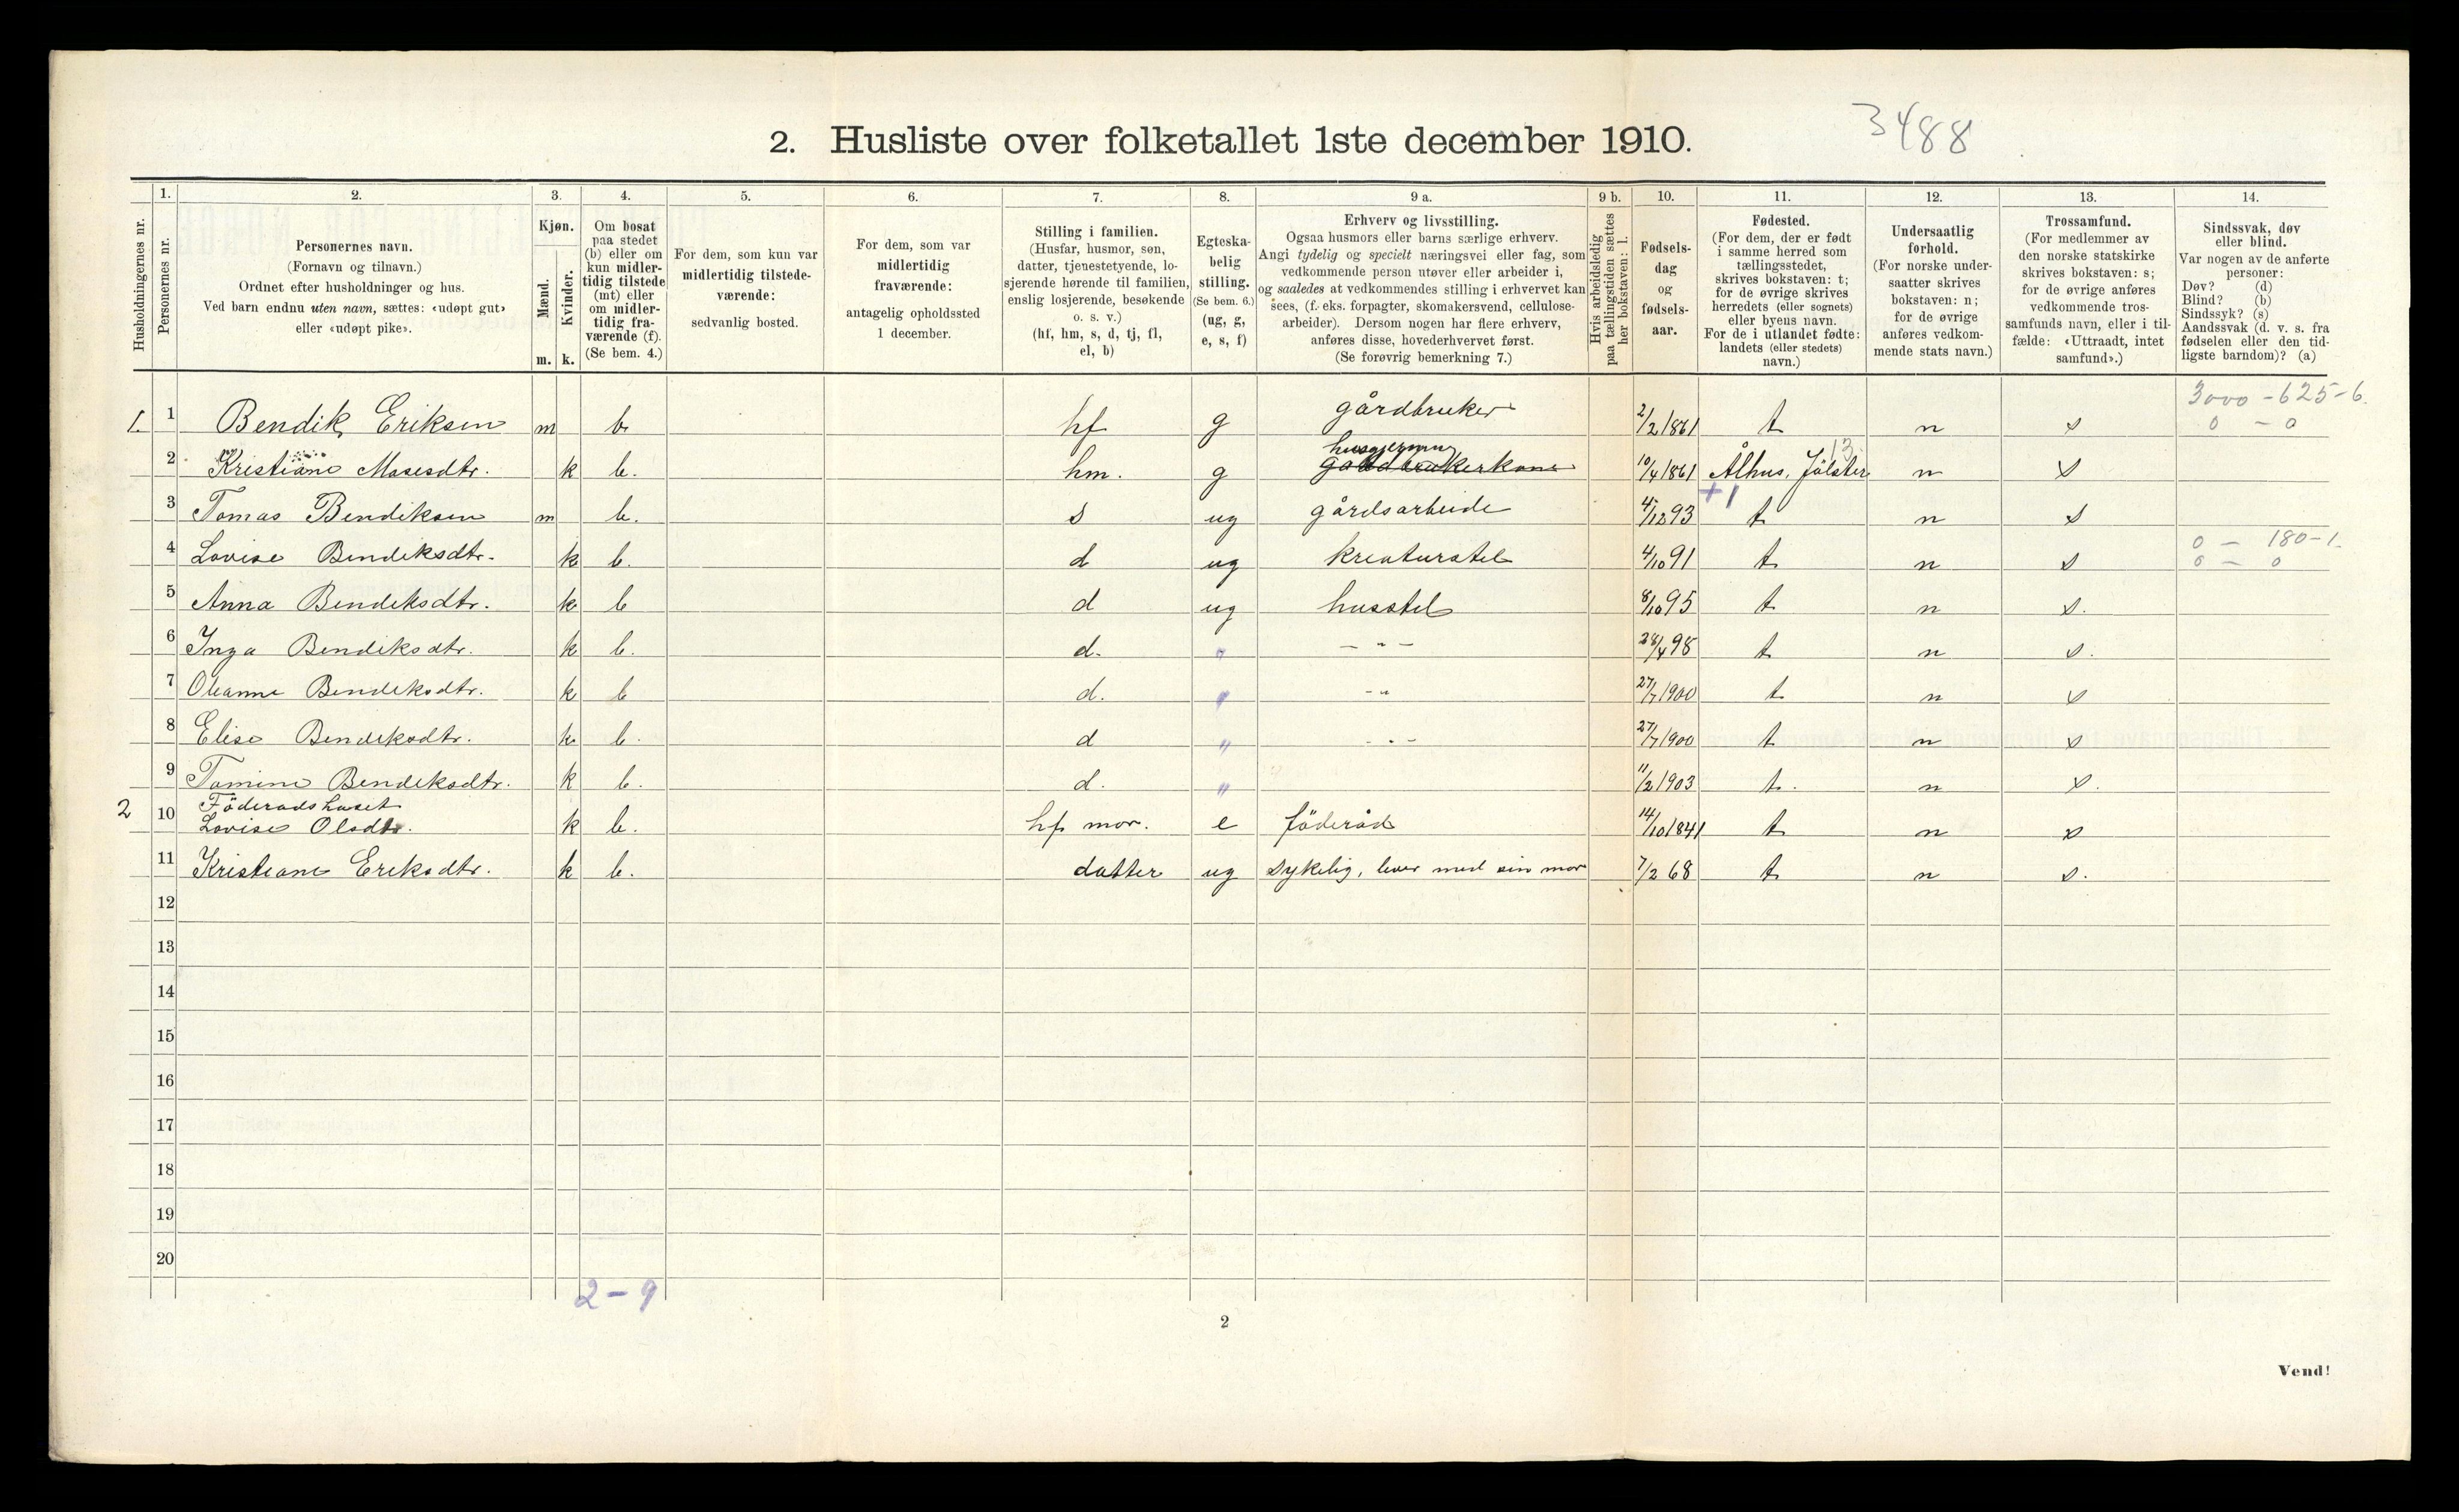 3488
2. Husliste over folketallet 1ste december 1910.
Husholdningernes nr.
1.
Personernes nr.
2.
Personernes navn.
(Fornavn og tilnavn.)
Ordnet efter husholdninger og hus.
Ved barn endnu uten navn, sættes: «udøpt gut»
eller «udøpt pike».
3.
Kjøn.
Mænd.
Kvinder.
m. k.
4.
Om bosat
paa stedet
(b) eller om
kun midler-
tidig tilstede
(mt) eller
om midler-
tidig fra-
værende (f).
(Se bem. 4.)
5.
For dem, som kun var
midlertidig tilstede-
værende:
sedvanlig bosted.
6.
For dem, som var
midlertidig
fraværende:
antagelig opholdssted
1 december.
7.
Stilling i familien.
(Husfar, husmor, søn,
datter, tjenestetyende, lo-
sjerende hørende til familien,
enslig losjerende, besøkende
o. s. v.)
(hf, hm, s, d, tj, fl,
el, b)
8.
Egteska-
belig
stilling.
(Se bem. 6.)
(ug, g,
e, s, f)
9 a.
Erhverv og livsstilling.
Ogsaa husmors eller barns særlige erhverv.
Angi tydelig og specielt næringsvei eller fag, som
vedkommende person utøver eller arbeider i,
og saaledes at vedkommendes stilling i erhvervet kan
sees, (f. eks. forpagter, skomakersvend, cellulose-
arbeider). Dersom nogen har flere erhverv,
anføres disse, hovederhvervet først.
(Se forøvrig bemerkning 7.)
9 b.
Hvis arbeidsledig
paa tællingstiden sættes
her bokstaven: l.
10.
Fødsels-
dag
og
fødsels-
aar.
11.
Fødested.
(For dem, der er født
i samme herred som
tællingsstedet,
skrives bokstaven: t;
for de øvrige skrives
herredets (eller sognets)
eller byens navn.
For de i utlandet fødte:
landets (eller stedets)
navn.)
12.
Undersaatlig
forhold.
(For norske under-
saatter skrives
bokstaven: n;
for de øvrige
anføres vedkom-
mende stats navn.)
13.
Trossamfund.
(For medlemmer av
den norske statskirke
skrives bokstaven: s;
for de øvrige anføres
vedkommende tros-
samfunds navn, eller i til-
fælde: «Uttraadt, intet
samfund».)
14.
Sindssvak, døv
eller blind.
Var nogen av de anførte
personer:
Døv? (d)
Blind? (b)
Sindssyk? (s)
Aandssvak (d. v. s. fra
fødselen eller den tid-
ligste barndom)? (a)
3000 - 625-6.
1. 1 Bendik Eriksen m b hf g gårdbruker 2/2 1861 t n s 0 - 0
husgjerning 13
2 Kristiane Mosesdtr. k b. hm. g gårdbrukerkone 10/4 1861 Ålhus, Jölster n s
+1
3 Tomas Bendiksen m b. s ug gårdsarbeide 4/12 93 t n s
0 - 180-1.
4 Lovise Bendiksdtr. k b. d ug kreaturstel 4/10 91 t n s 0 - 0
5 Anna Bendiksdtr. k b d ug husstel 8/10 95 t n s.
6 Inga Bendiksdtr. k b. d. " - " - 28/4 98 t n s.
7 Oleanne Bendiksdtr. k b d. " - " 27/7 1900 t n s
8 Elise Bendiksdtr. k b. d " - " - 27/7 1900 t n s
9 Tomine Bendiksdtr. k b. d. " 11/2 1903 t. n s.
2 Föderadshuset
10 Lovise Olsdtr. k b. hf mor. e föderåd 14/10 1841 t n s
11 Kristiane Eriksdtr. k b. datter ug sykelig, lever med sin mor 7/2 68 t n s.
12
13
14
15
16
17
18
19
20
2-9
2
Vend!